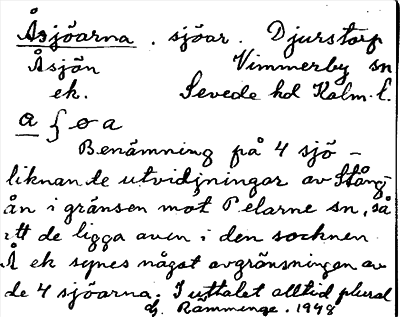 Åsjöarna. sjöar. Djurstorp
Åsjön Vimmerby sn
ek. Sevede hd Kalm. l.
a { ø a
Benämning på 4 sjö-
liknande utvidjningar av Stång-
ån i gränsen mot Pelarne sn, så
att de ligga även i den socknen
Å ek synes något avgränsningen av
de 4 sjöarna. I uttalet alltid plural
Ramminge. 1948